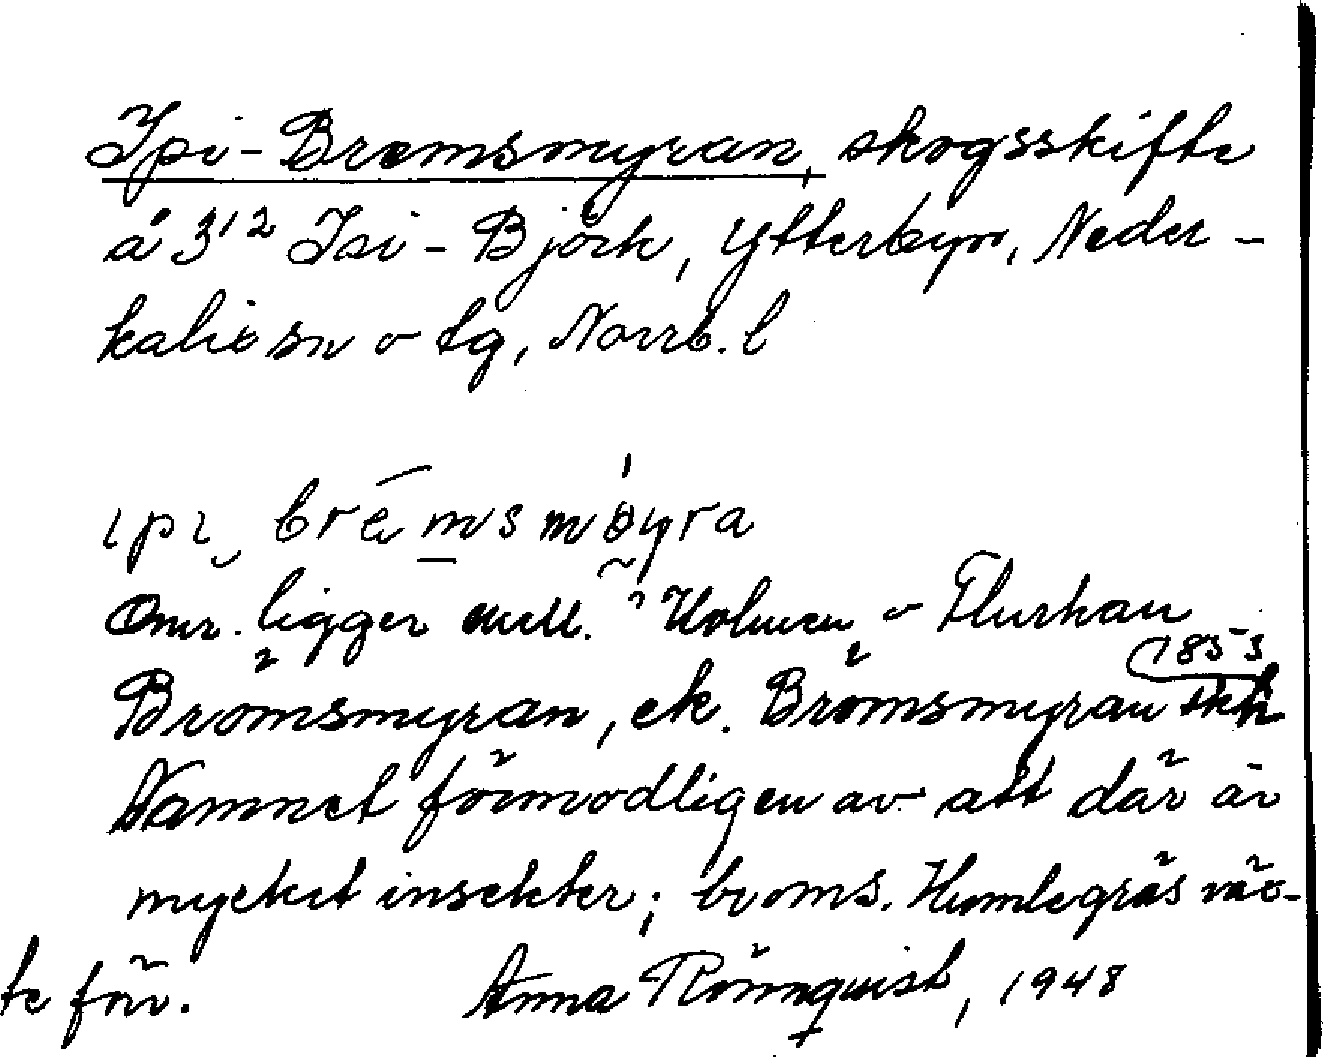 Ipi-Bromsmyran, skogsskifte
å 3¹² Isi-Björk, Ytterbyn, Neder-
kalix sn o tg, Norrb. l
ɩpɩ brém̲smøyra
Omr. ligger mell. Holmen o Flurkan
(1853
Brömsmyran, ek. Brömsmyran skh
Namnet förmodligen av att där är
mycket insekter; broms. Humlegräs väx-
te förr. Anna Rönnquist, 1948